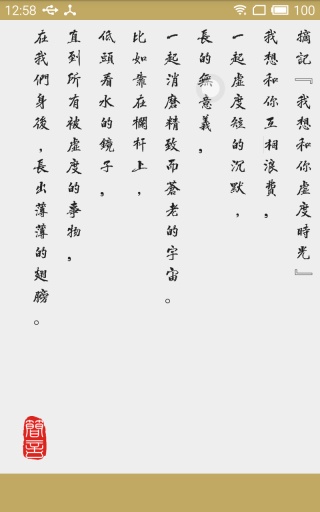 12:58
100
摘記『我想和你虛度時光』
我想和你互相浪費，
一起虛度短的沉默，
長的無意義，
一起消磨精致而蒼老的宇宙。
比如靠在欄杆上，
低頭看水的鏡子，
直到所有被虛度的事物，
在我們身後，長出薄薄的翅膀。